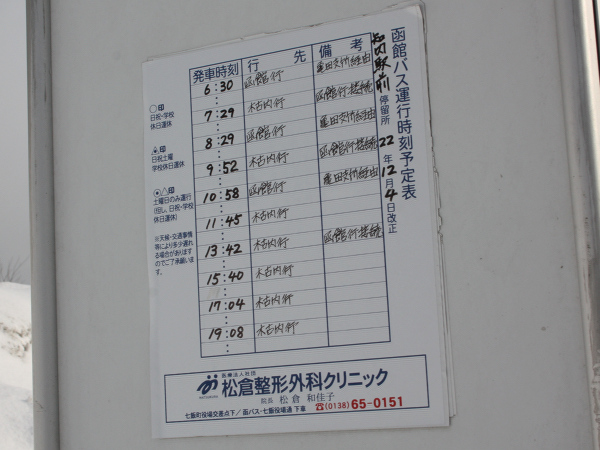 函館バス運行時刻予定表
知内駅前 停留所 22年12月4日改正
発車時刻 行先 備考
6:30 函館行 亀田支所経由
7:29 木古内行 函館行接続
8:29 函館行 亀田支所経由
9:52 木古内行 函館行接続
10:58 函館行 亀田支所経由
11:45 木古内行
13:42 木古内行 函館行接続
15:40 木古内行
17:04 木古内行
19:08 木古内行
○印
日祝・学校
休日運休
日祝土曜
学校休日運休
土曜日のみ運行
(但し、日祝・学校
休日運休)
※天候・交通事情
等により多少遅れ
る場合があります
のでご了承願いま
す。
医療法人社団
松倉整形外科クリニック
院長 松倉 和佳子
☎(0138)65-0151
七飯町役場交差点下/函バス・七飯役場通 下車